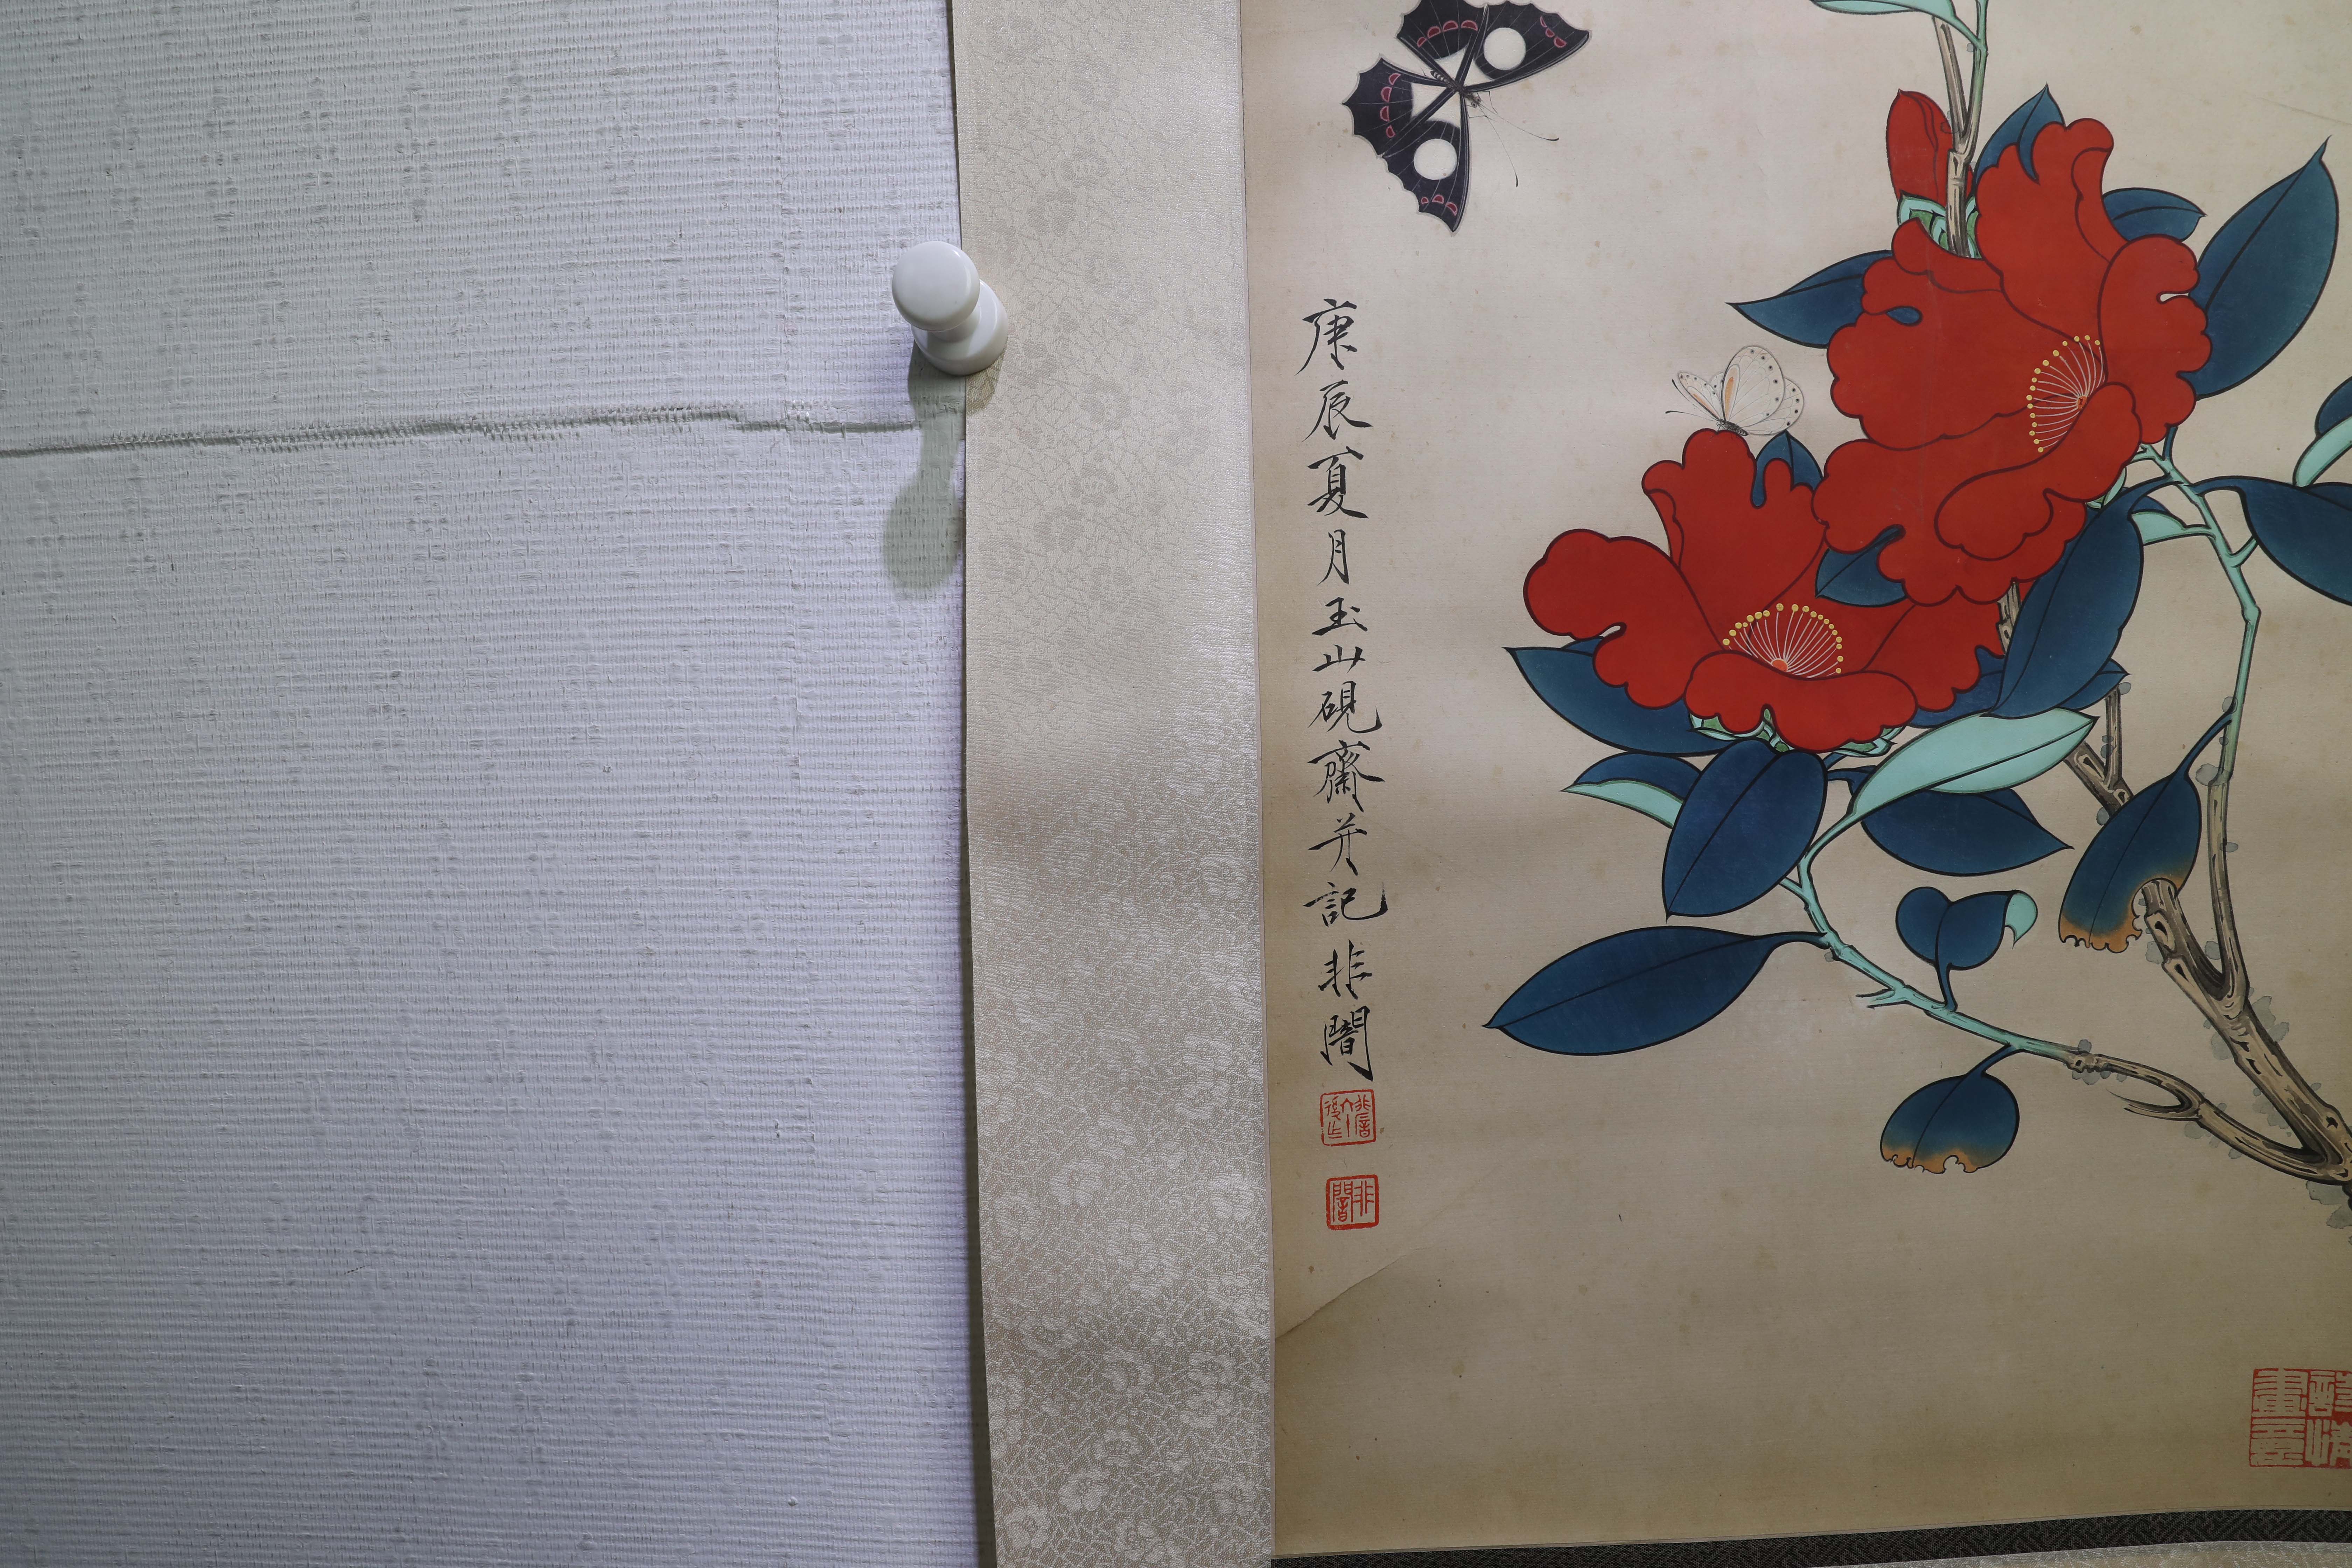 庚辰夏月玉山硯齋并記非闇
非闇